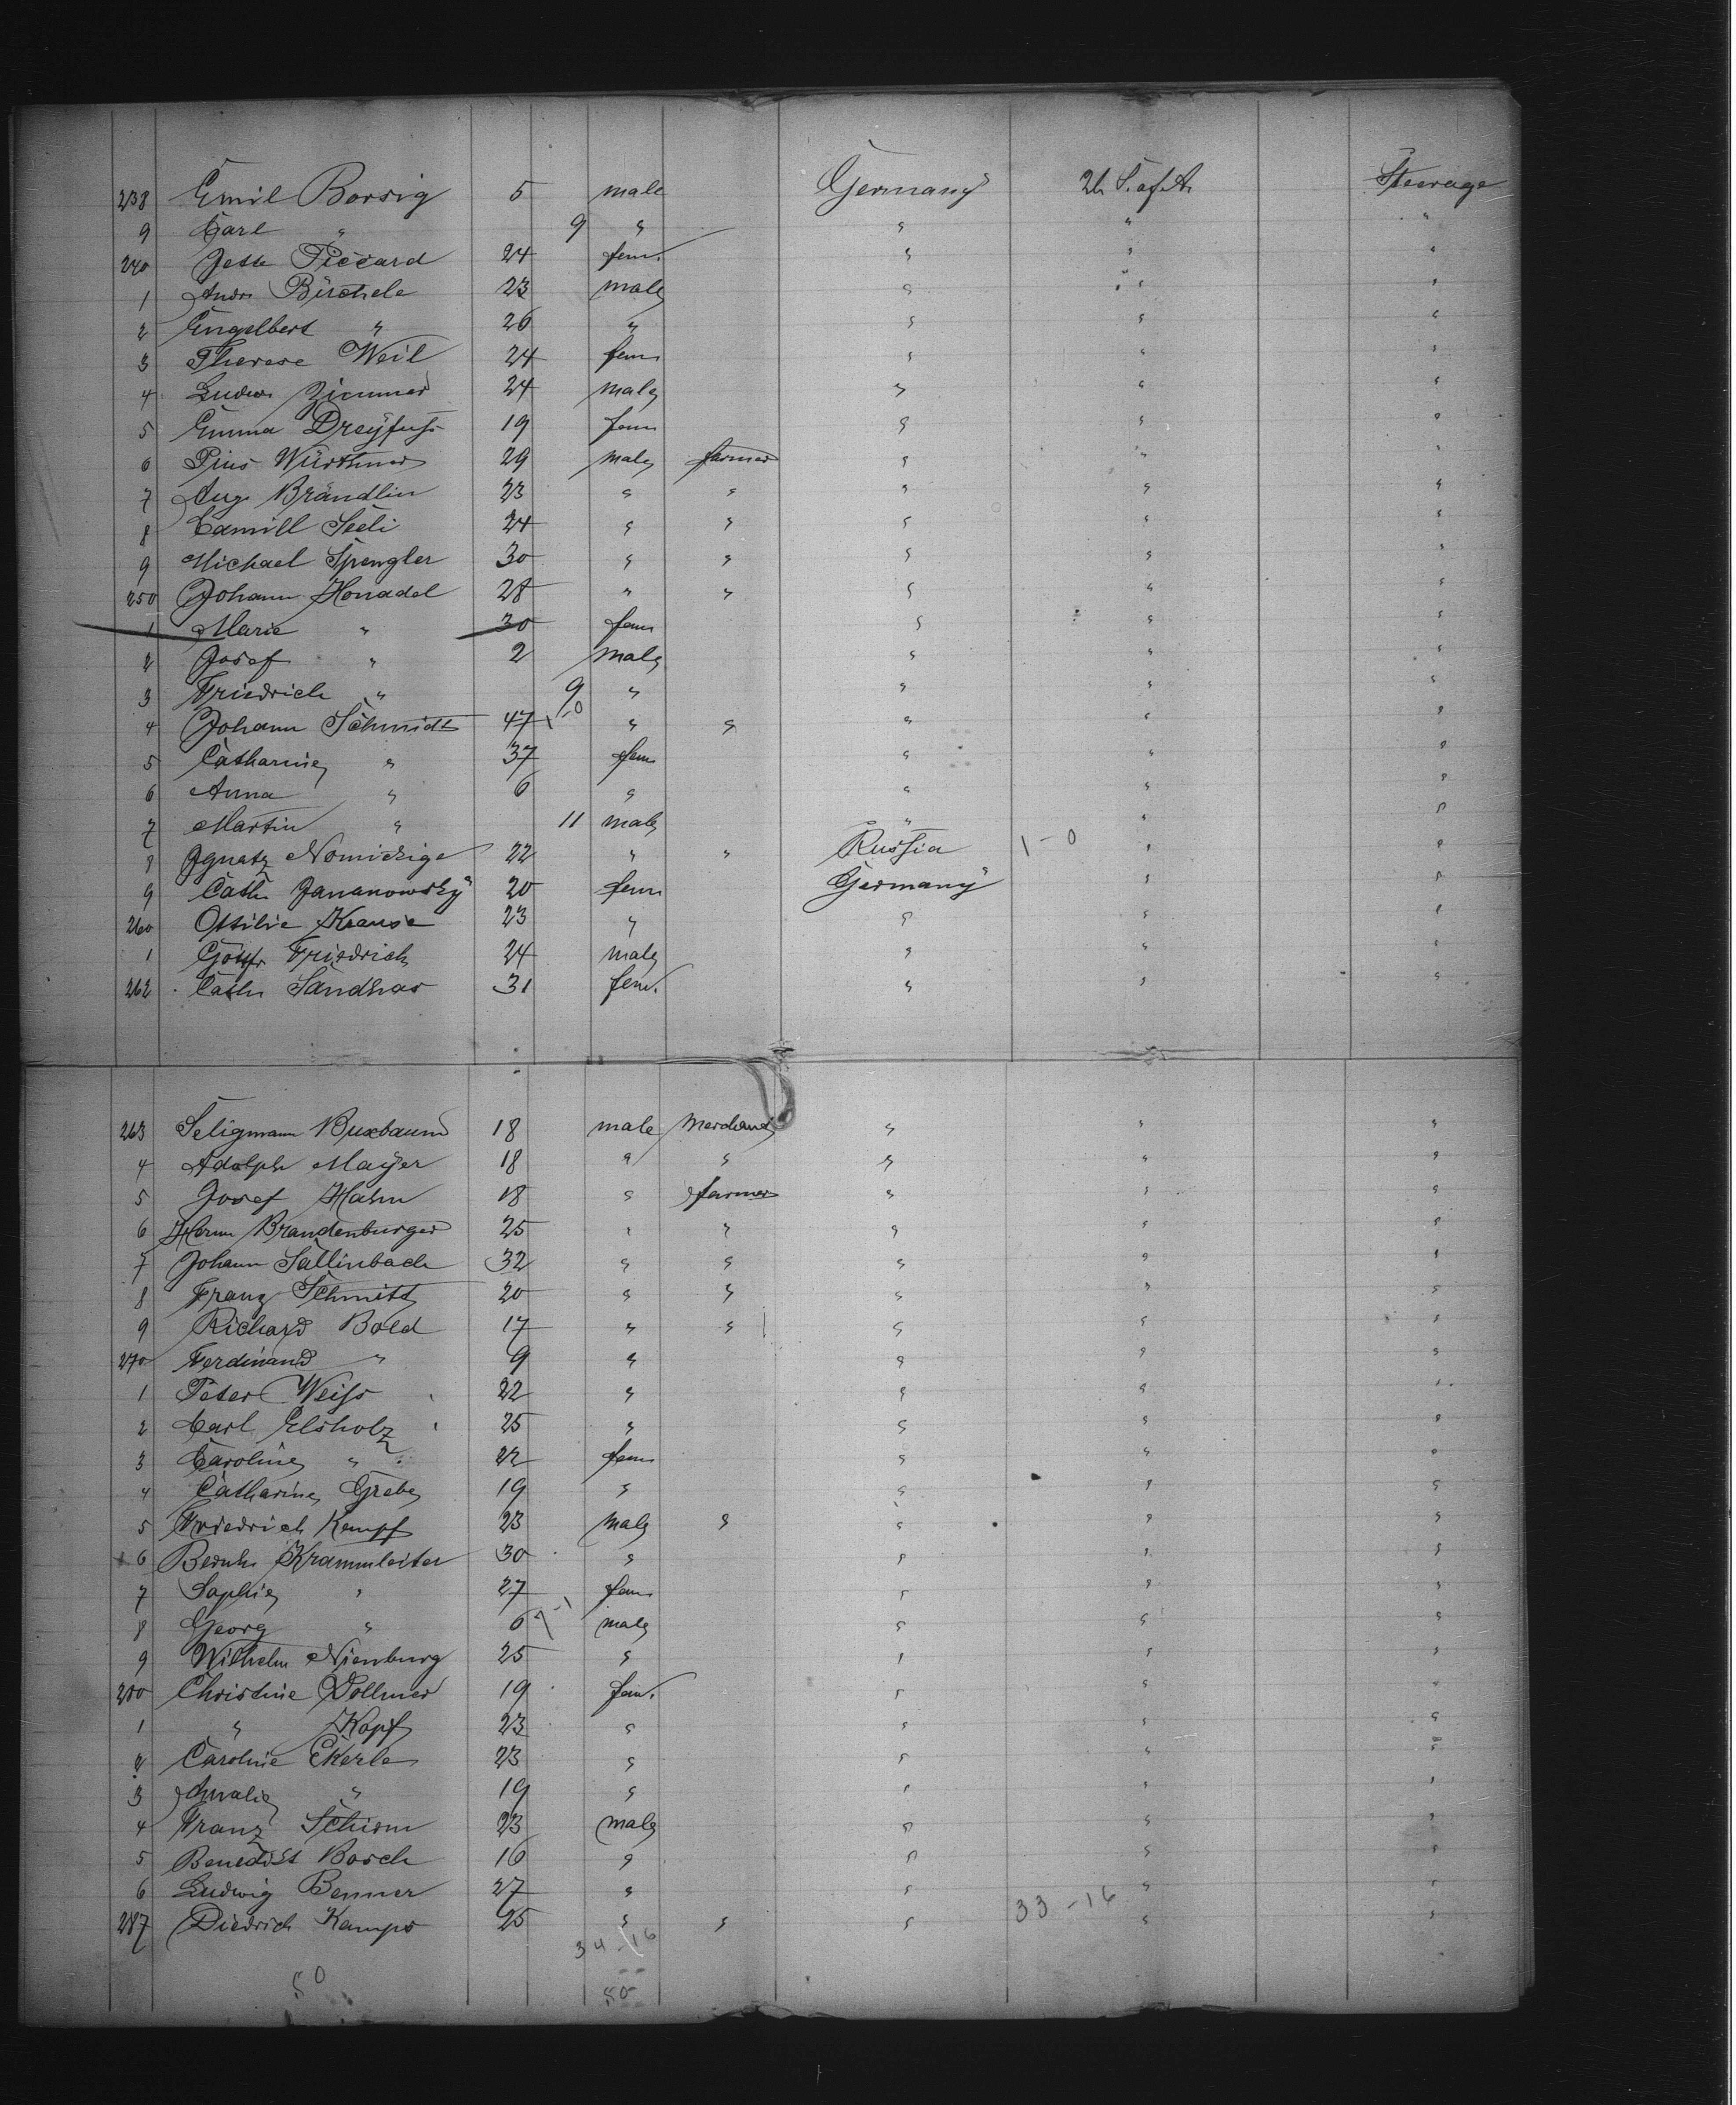 238 Emil Borsig 5 male Germany U. S. of A. Steerage
9 Carl " 9 " " " "
240 Jette Piccard 24 fem. " " "
1 Andr Bürchele 23 male " " "
2 Engelbert " 26 " " " "
3 Therese Weil 24 fem " " "
4 Ludw Zimmer 24 male " " "
5 Emma Dreyfuss 19 fem " " "
6 Pius Würthner 29 male farmer " " "
7 Aug. Brändlin 23 " " " " "
8 Camill Seeli 24 " " " " "
9 Michael Spengler 30 " " " " "
250 Johann Honadel 28 " " " " "
1 Marie " 30 fem " " "
2 Josef " 2 male " " "
3 Friedrich " 9 " " " "
4 Johann Schmidt 47 1-0 " " " " "
5 Catharine " 37 fem " " "
6 Anna " 6 " " " "
7 Martin " 11 male " " "
8 Ignatz 22 " " Russia 1-0 " "
9 Cath Jananowsky 20 fem Germany " "
260 Ottilie Krause 23 " " " "
1 Gottfr Friedrich 24 male " " "
262 Cath Sandhas 31 fem. " " "
263 Seligmann Buxbaum 18 male Merchand " " "
4 Adolph Mayer 18 " " " " "
5 Josef Hahn 18 " farmer " " "
6 Herm Brandenburger 25 " " " " "
7 Johann Sallinbach 32 " " " " "
8 Franz Schmitt 20 " " " " "
9 Richard Bold 17 " " " " "
270 Ferdinand " 9 " " " "
1 Peter Weiss 22 " " " "
2 Carl Elsholz 25 " " " "
3 Caroline " 22 fem " " "
4 Catharine Grebe 19 " " " "
5 Friedrich Kempf 23 male " " " "
6 Bernh Krammleiter 30 " " " "
7 Sophie " 27 fem " " "
8 Georg " 6 male " " "
9 Wilhelm Nienburg 25 " " " "
280 Christine Vollmer 19 fem. " " "
1 " Kopf 23 " " " "
2 Caroline Ekerle 23 " " " "
3 Amalie " 19 " " " "
4 Franz Schirm 23 male " " "
5 Benedikt Bosch 16 " " " "
6 Ludwig Benner 27 " " " "
287 Diedrich Kamps 25 " " " 33-16 " "
34-16
50 50